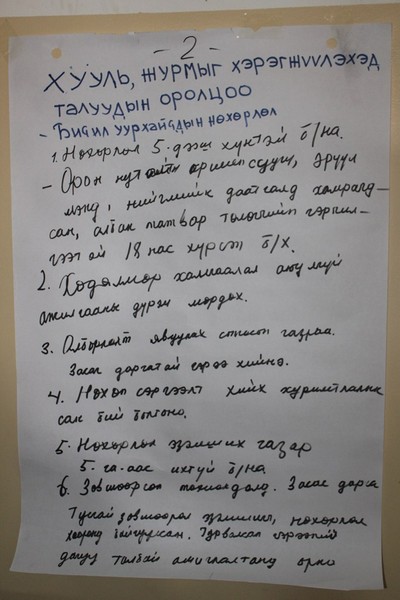 - 2 -
ХУУЛЬ, ЖУРМЫГ ХЭРЭГЖҮҮЛЭХЭД
ТАЛУУДЫН ОРОЛЦОО
- БИЧИЛ УУРХАЙЧДЫН НӨХӨРЛӨЛ
1. Нөхөрлөл 5-дээш хүнтэй б/на.
- Орон нутгийн оршин суугч, эрүүл
мэнд, нийгмийн даатгалд хамрагд-
сан, албан татвар төлөгчийн гэрчил-
гээтэй 18 нас хүрсэн б/х.
2. Хөдөлмөр хамгаалал аюулгүй
ажиллагааны дүрэм мөрдөх.
3. явуулах газраа
Засаг даргатай гэрээ хийнэ.
4. Нөхөн сэргээлт хийх хуримтлалын
сан бий болгоно.
5. Нөхөрлөл эзэмших газар
5-га-аас ихгүй б/на.
6. Зөвшөөрсөн тохиолдолд Засаг дарга
Тусгай зөвшөөрөл эзэмшигч, нөхөрлөл
хооронд байгуулсан. Гурвалсан гэрээний
дагуу талбайг орно